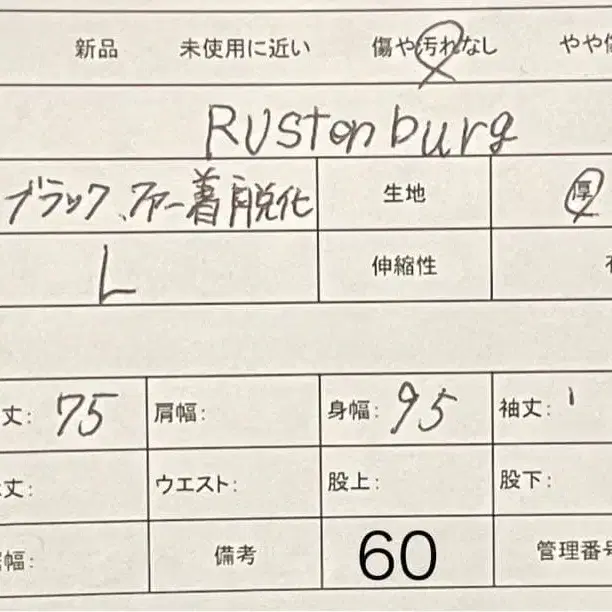 新品 未使用に近い 傷や汚れなし やや
Rustonburg
ブラック、ファー着脱化 生地 厚
L 伸縮性
丈: 75 肩幅: 身幅: 95 袖丈:
丈: ウエスト: 股上: 股下:
幅: 備考 60 管理番号